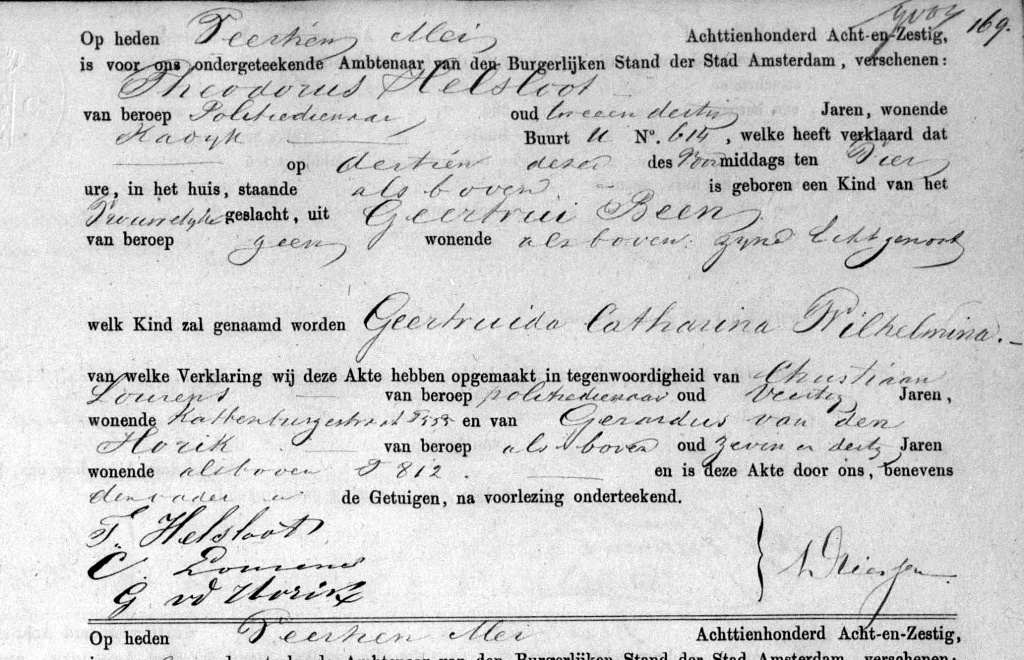 169.
Op heden Veertien Mei Achttienhonderd Acht-en-Zestig,
is voor ons ondergeteekende Ambtenaar van den Burgerlijken Stand der Stad Amsterdam, verschenen:
Theodorus Helsloot
van beroep Politiedienaar oud tweeendertig Jaren, wonende
Kadyk Buurt U No. 614, welke heeft verklaard dat
op dertien dezer des Voormiddags ten Vier
ure, in het huis, staande als boven is geboren een Kind van het
Vrouwelyke geslacht, uit Geertrui Been
van beroep geen wonende als boven. zyne Echtgenoot
welk Kind zal genaamd worden Geertruida Catharina Wilhelmina.
van welke Verklaring wij deze Akte hebben opgemaakt in tegenwoordigheid van Christiaan
Lourens van beroep politiedienaar oud Veertig Jaren,
wonende Kattenburgestraat en van Gerardus van den
Horik van beroep als boven oud zeven en dertig Jaren
wonende als boven T 812. en is deze Akte door ons, benevens
den vader en de Getuigen, na voorlezing onderteekend.
T. Helsloot
C. Lourens
G vd Horik
Op heden Veertien Mei Achttienhonderd Acht-en-Zestig,
Ambtenaar van den Burgerlijken Stand der Stad Amsterdam, verschenen: